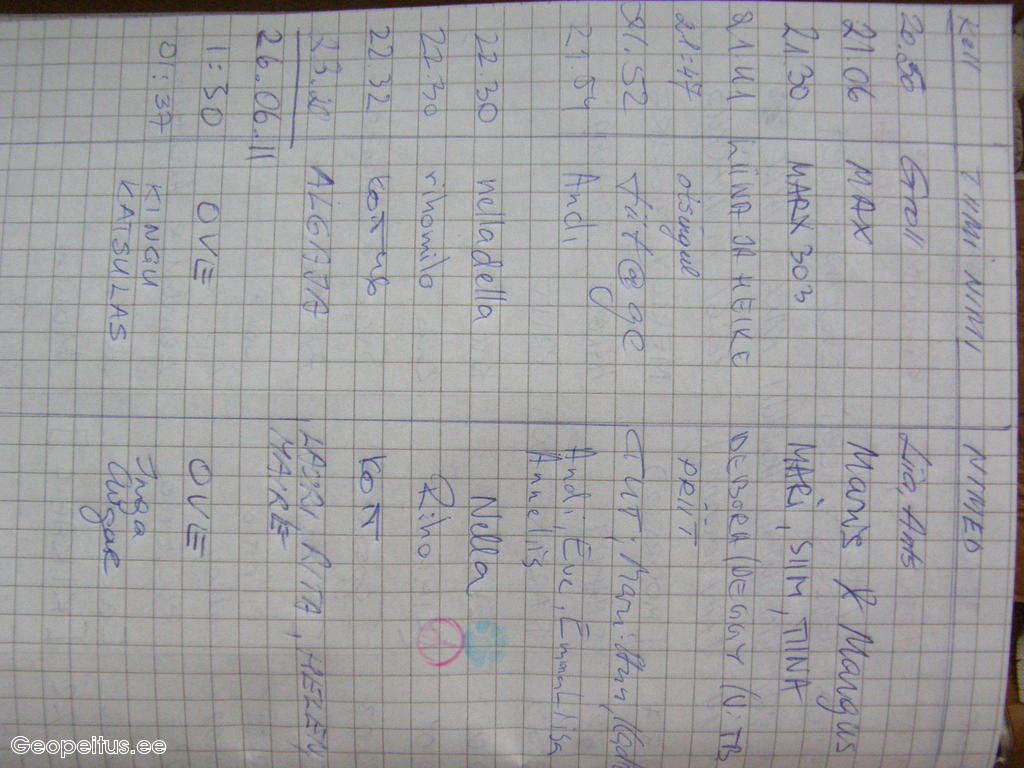 Kell TIIMI NIMI NIMED
20.50 Groll Liia, Ants
21.06 MAX Maris & Margus
21.30 MARX 303 MARI, SIIM, TIINA
21.41 LIINA JA HEIKE DEBORA
21:47 obsinaul PRIIT
21.52 Tiit@ge TIIT,
21.54 Andi Andi, Eve, Emma-Liisa
Anneliis
22.30 nelladella Nella
22.30 rihomilo Riho
22 32 KOTT KOTT
23.20 ALGAJA LAURI, RITA, HELEN
MARE
26.06.11
1:30 OVE OVE
01:37 KINGU Inga
KATSULAS Augar
Geopeitus.ee